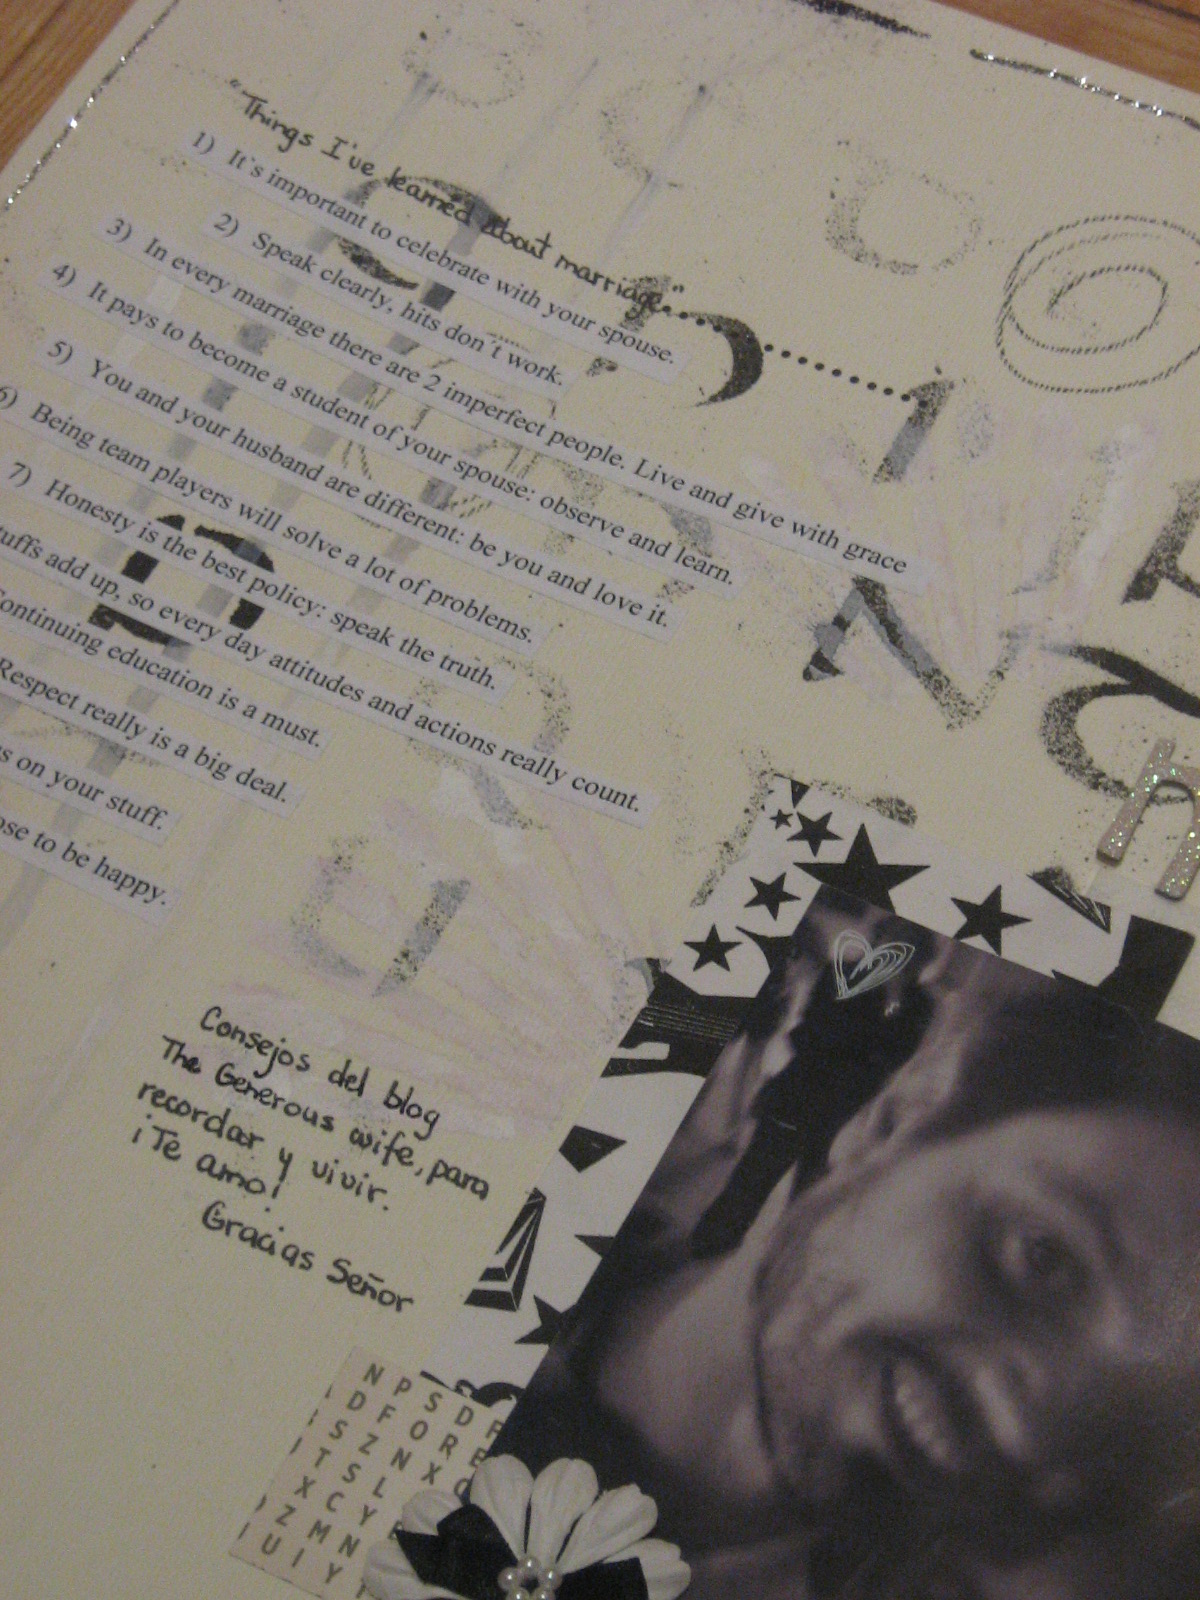 "Things I've learned about marriage"
1) It's important to celebrate with your spouse.
2) Speak clearly, hits don´t work.
3) In every marriage there are 2 imperfect people. Live and give with grace
4) It pays to become a student of your spouse: observe and learn.
5) You and your husband are different: be you and love it.
6) Being team players will solve a lot of problems.
7) Honesty is the best policy: speak the truth.
add up, so every day attitudes and actions really count.
Continuing education is a must.
Respect really is a big deal.
on your stuff.
to be happy.
Consejos del blog
The Generous wife, para
recordar y vivir.
¡Te amo!
Gracias Señor
N P S D
D F O R
S Z N X
T S L
X C Y
Z M N
U I Y
h